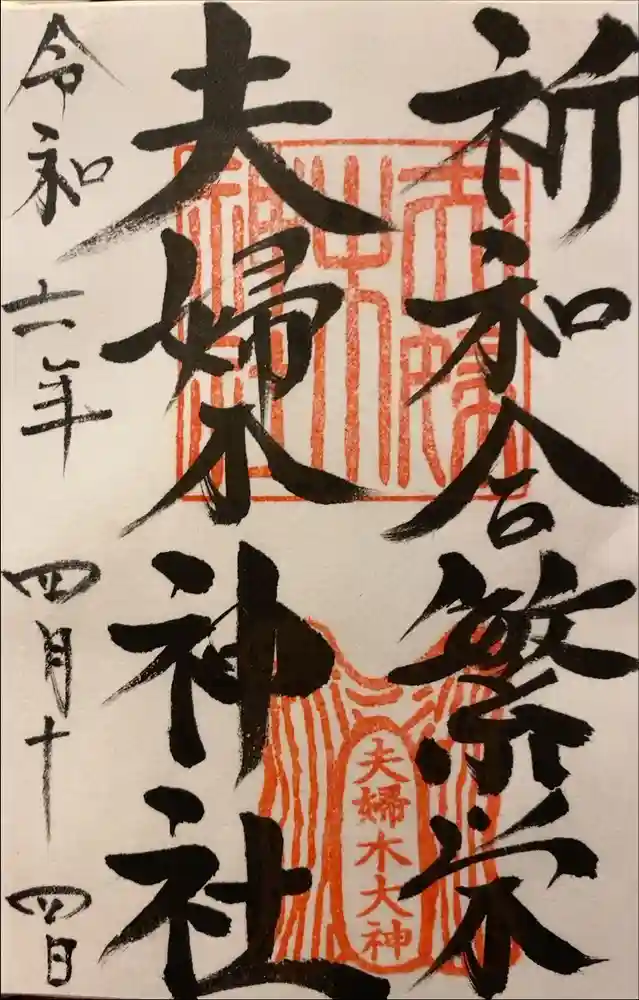 祈和合繁栄
夫婦木神社
夫婦木大神
令和六年四月十四日